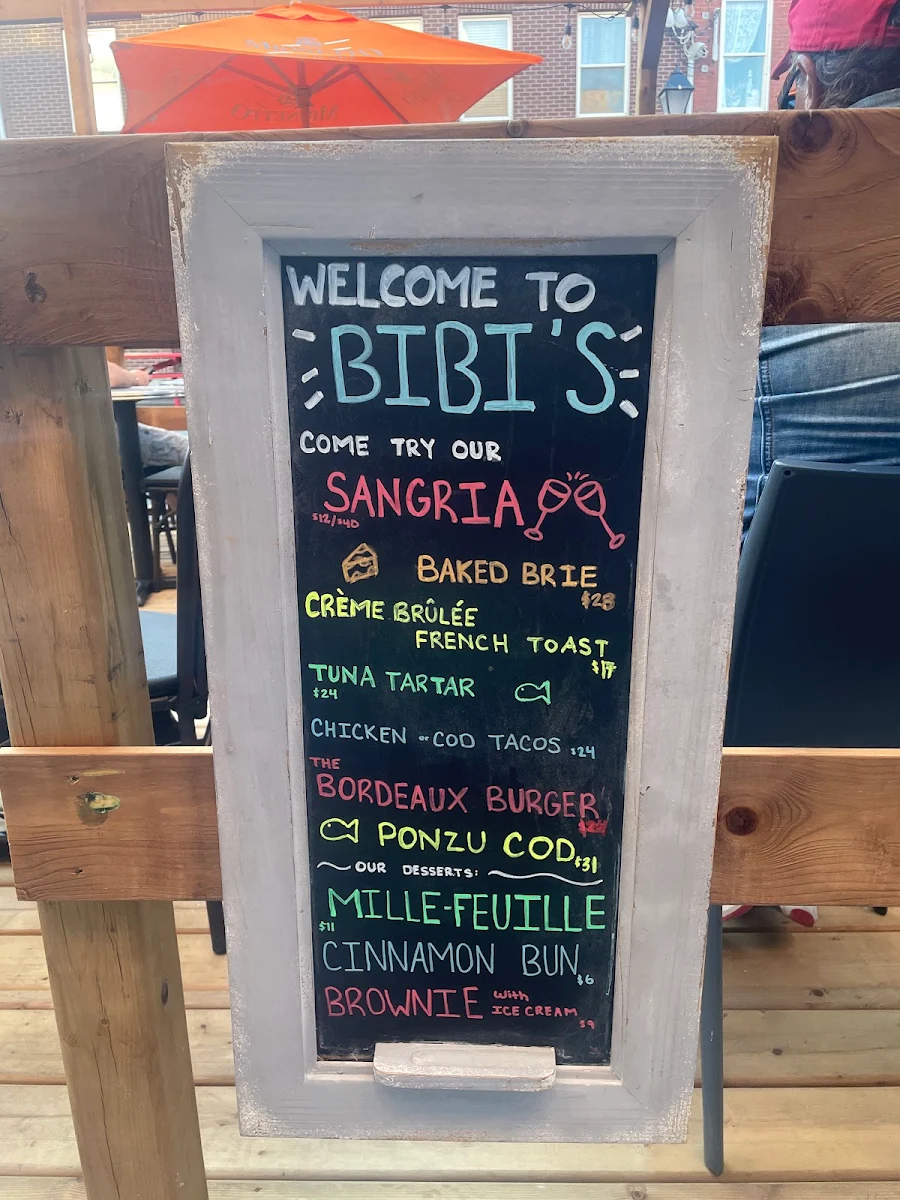 WELCOME TO
BIBI'S
COME TRY OUR
SANGRIA
$12/$40
BAKED BRIE
$28
CRÈME BRÛLÉE
FRENCH TOAST
$17
TUNA TARTAR
$24
CHICKEN or COD TACOS $24
THE
BORDEAUX BURGER
PONZU COD $31
OUR DESSERTS:
MILLE-FEUILLE
$11
CINNAMON BUN $6
BROWNIE with
ICE CREAM
$9